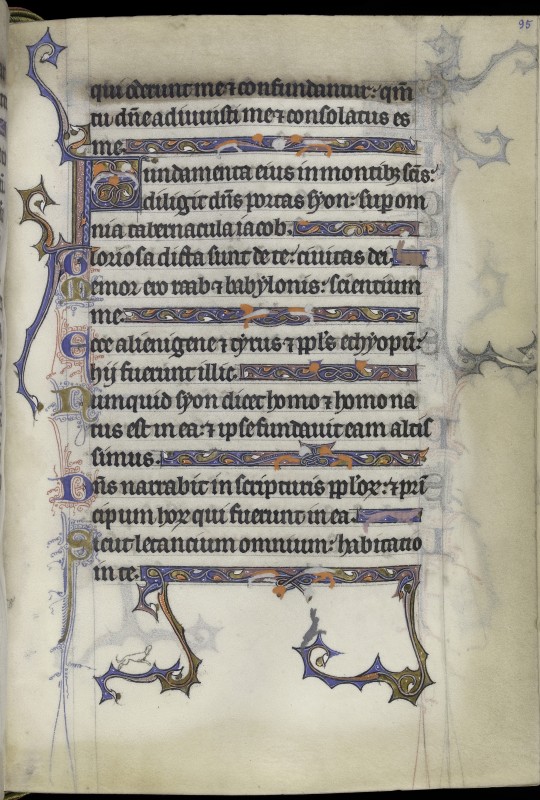 95
qui oderunt me ⁊ confundantur: qm̄
tu dn̄e adiuuisti me ⁊ consolatus es
me.
Fundamenta eius in montibꝫ scīs:
diligit dn̄s portas syon: sup om
nia tabernacula iacob.
Gloriosa dicta sunt de te: ciuitas dei.
Memor ero raab ⁊ babylonis: scientium
me.
Ecce alienigene ⁊ tyrus ⁊ ppl̄s ethyopū:
hij fuerunt illic.
Numquid syon dicet homo ⁊ homo na
tus est in ea: ⁊ ipse fundauit eam altis
simus.
Dn̄s narrabit in scripturis ppl'oꝝ: ⁊ pri
cipum hoꝝ qui fuerunt in ea.
Sicut letancium omnium: habitacio
in te.